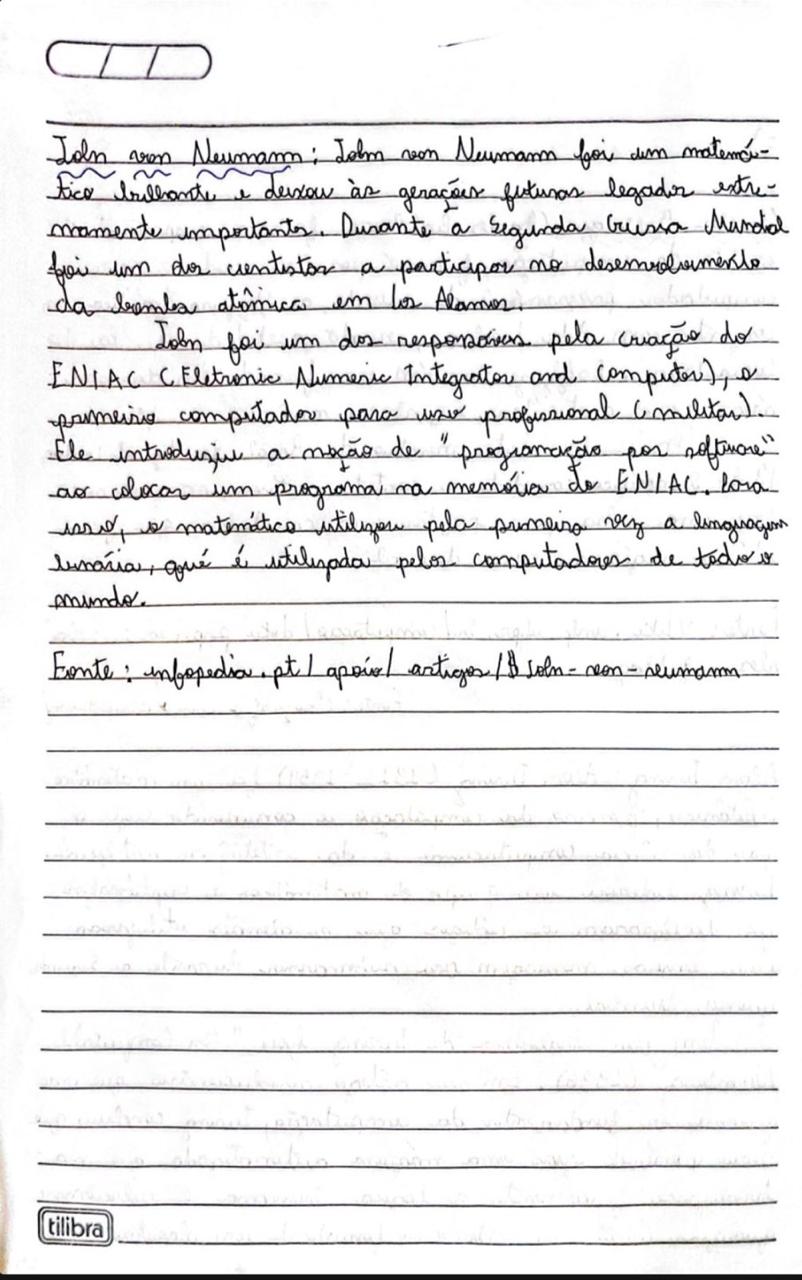 John von Neumann: John von Neumann foi um matemá-
tico brilhante e deixou às gerações futuras legados extre-
mamente importantes. Durante a Segunda Guerra Mundial
foi um dos cientistas a participar no desenvolvimento
da bomba atômica em Los Alamos.
John foi um dos responsáveis pela criação do
ENIAC (Eletronic Numeric Integrator and Computer), o
primeiro computador para uso profissional (militar).
Ele introduziu a noção de "programação por software"
ao colocar um programa na memória do ENIAC. Para
isso, o matemático utilizou pela primeira vez a linguagem
binária, qué é utilizada pelos computadores de todo o
mundo.
Fonte: infopedia.pt/apoio/artigos/$john-von-neumann
tilibra